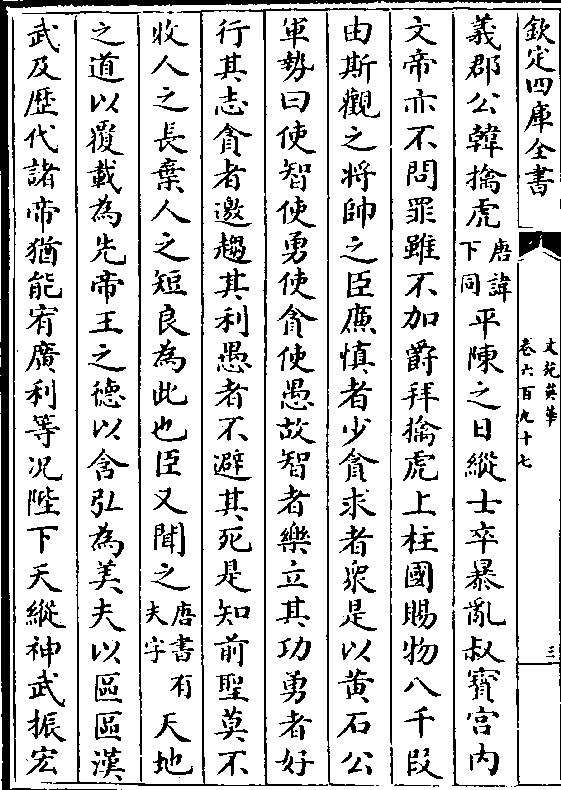 欽定四庫全書
文苑英華
卷六百九十七
三
義郡公韓擒虎唐諱下同平陳之日縱士卒暴亂叔寶宫内
文帝亦不問罪雖不加爵拜擒虎上柱國賜物八千段
由斯觀之將帥之臣廉慎者少貪求者衆是以黄石公
軍勢曰使智使勇使貪使愚故智者樂立其功勇者好
行其志貪者邀趨其利愚者不避其死是知前聖莫不
收人之長棄人之短良為此也臣又聞之唐書有夫字天地
之道以覆載為先帝王之德以含弘為美夫以區區漢
武及歴代諸帝猶能宥廣利等况陛下天縱神武振宏